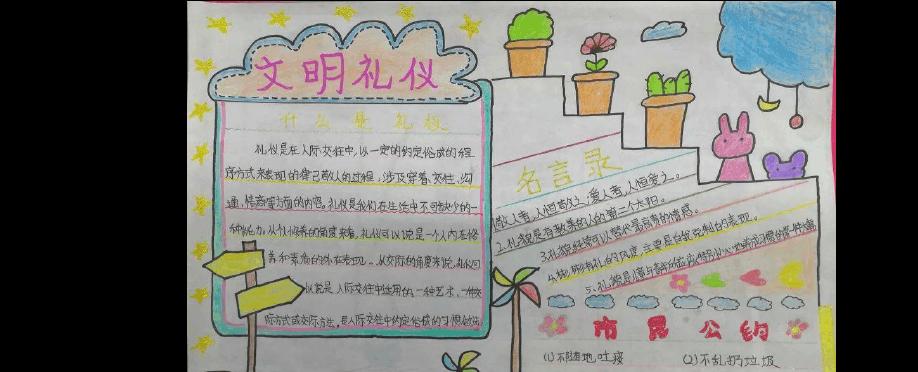 文明礼仪
什么是礼仪
礼仪是在人际交往中,以一定的约定俗成的程
序方式来表现的律己敬人的过程,涉及穿着、交往、沟
通、情商等方面的内容。礼仪是我们在生活中不可缺少的一
种能力。从个人修养的角度来看,礼仪可以说是一个人内在修
养和素质的外在表现。从交际的角度来说,礼仪可
以说是人际交往中适用的一种艺术、一种交
际方式或交际方法,是人际交往中约定俗成的习惯做法
名言录
敬人者,人恒敬之,爱人者,人恒爱之。
2.礼貌是有教养的人的第二个太阳。
3.礼貌经常可以替代最高贵的情感。
4.彬彬有礼的风度,主要是自我克制的表现。
5.礼貌是
市民公约
(1)不随地吐痰
(2)不乱扔垃圾